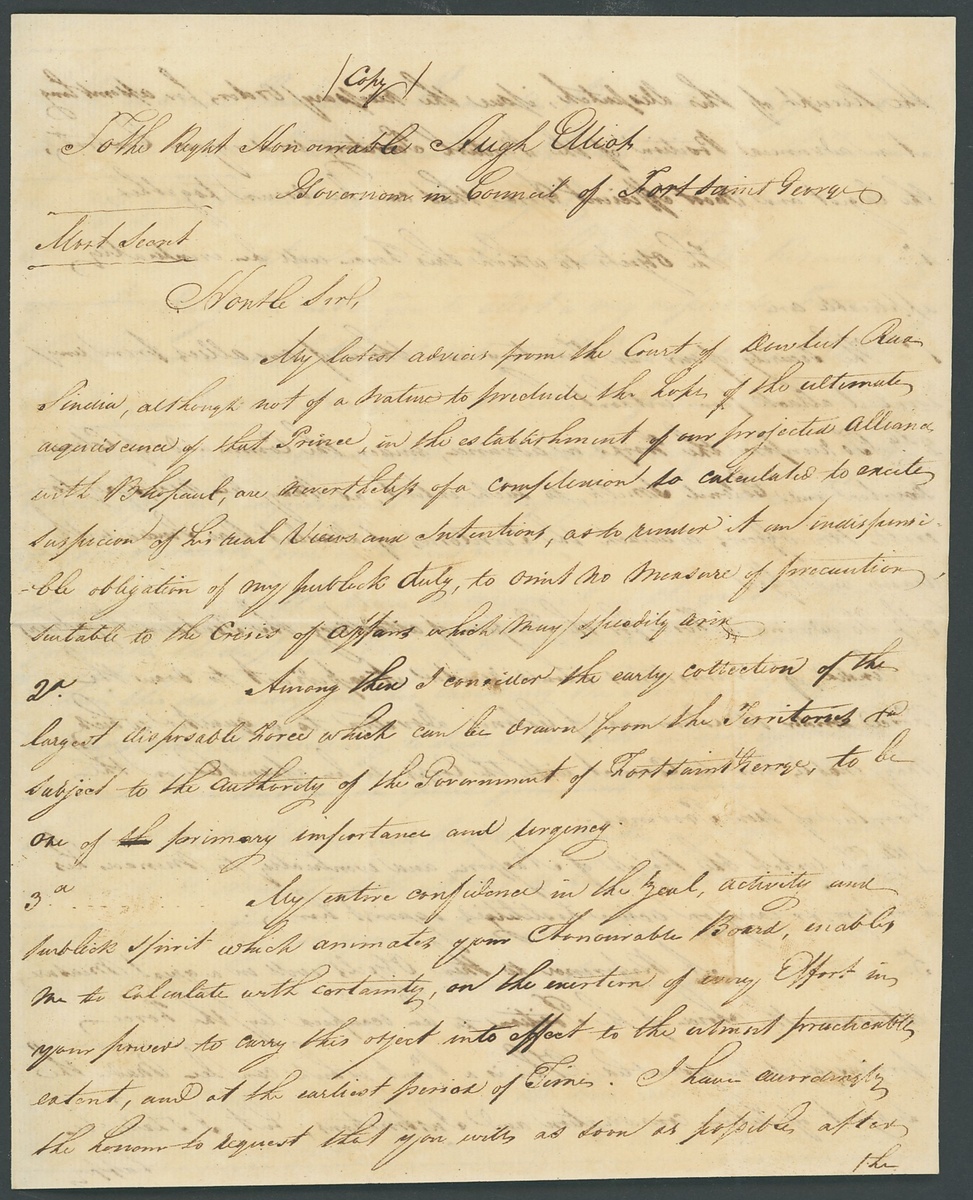 (Copy)
To the Right Honourable Hugh Elliot
Governor in Council of Fort Saint George
Most Secret
Honble Sir,
My latest advices from the Court of Dowlut Rao
Sindia, although not of a nature to preclude the hope of the ultimate
acquiescence of that Prince, in the establishment of our projected Alliance
with Bhopaul, are nevertheless of a complexion so calculated to excite
suspicion of his real Views and Intentions, as to render it an indispensi-
-ble obligation of my publick duty, to omit no measure of precaution,
suitable to the Crisis of Affairs which may speedily arise
2d. Among these I consider the early collection of the
largest disposable Force which can be drawn from the Territories
subject to the authority of the Government of Fort Saint George, to be
one of primary importance and urgency.
3d. My entire confidence in the Zeal, activity and
publick spirit which animates your Honourable Board, enables
me to calculate with certainty, on the exertion of every Effort in
your power to carry this object into effect to the utmost practicable
extent, and at the earliest period of Time. I have accordingly
the honour to request that you will as soon as possible after
the